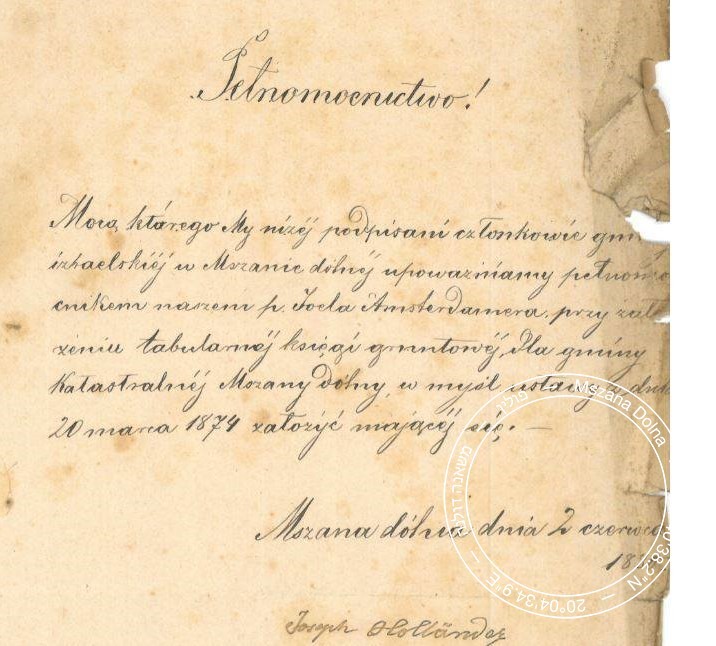 Pełnomocnictwo!
Mocą którego My niżéj podpisani członkowie
izraelskiéj w Mszanie dólnéj upoważniamy pełnomo
cnikem naszem p. Joela Amsterdamera, przy zało
żeniu tabularnéj księgi gruntowéj, dla gminy
Katastralnéj Mszany Dólny, w myśl ustawy z dnia
20 marca 1874 założyć mającéj się. —
Mszana dólna dnia 2 czerwca
Joseph Holländer
Mszana Dolna
20°04'34.9"E